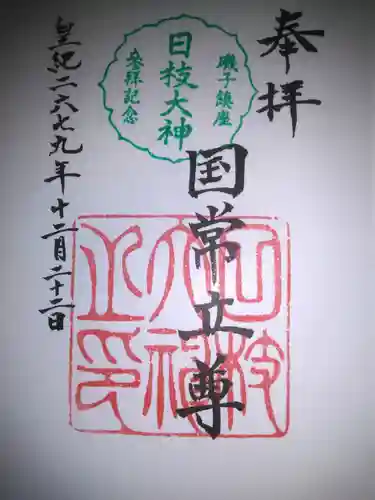 奉拝
磯子鎮座
日枝大神
参拝記念
国常立尊
日枝
大神
之印
皇紀二六七九年十二月二十二日